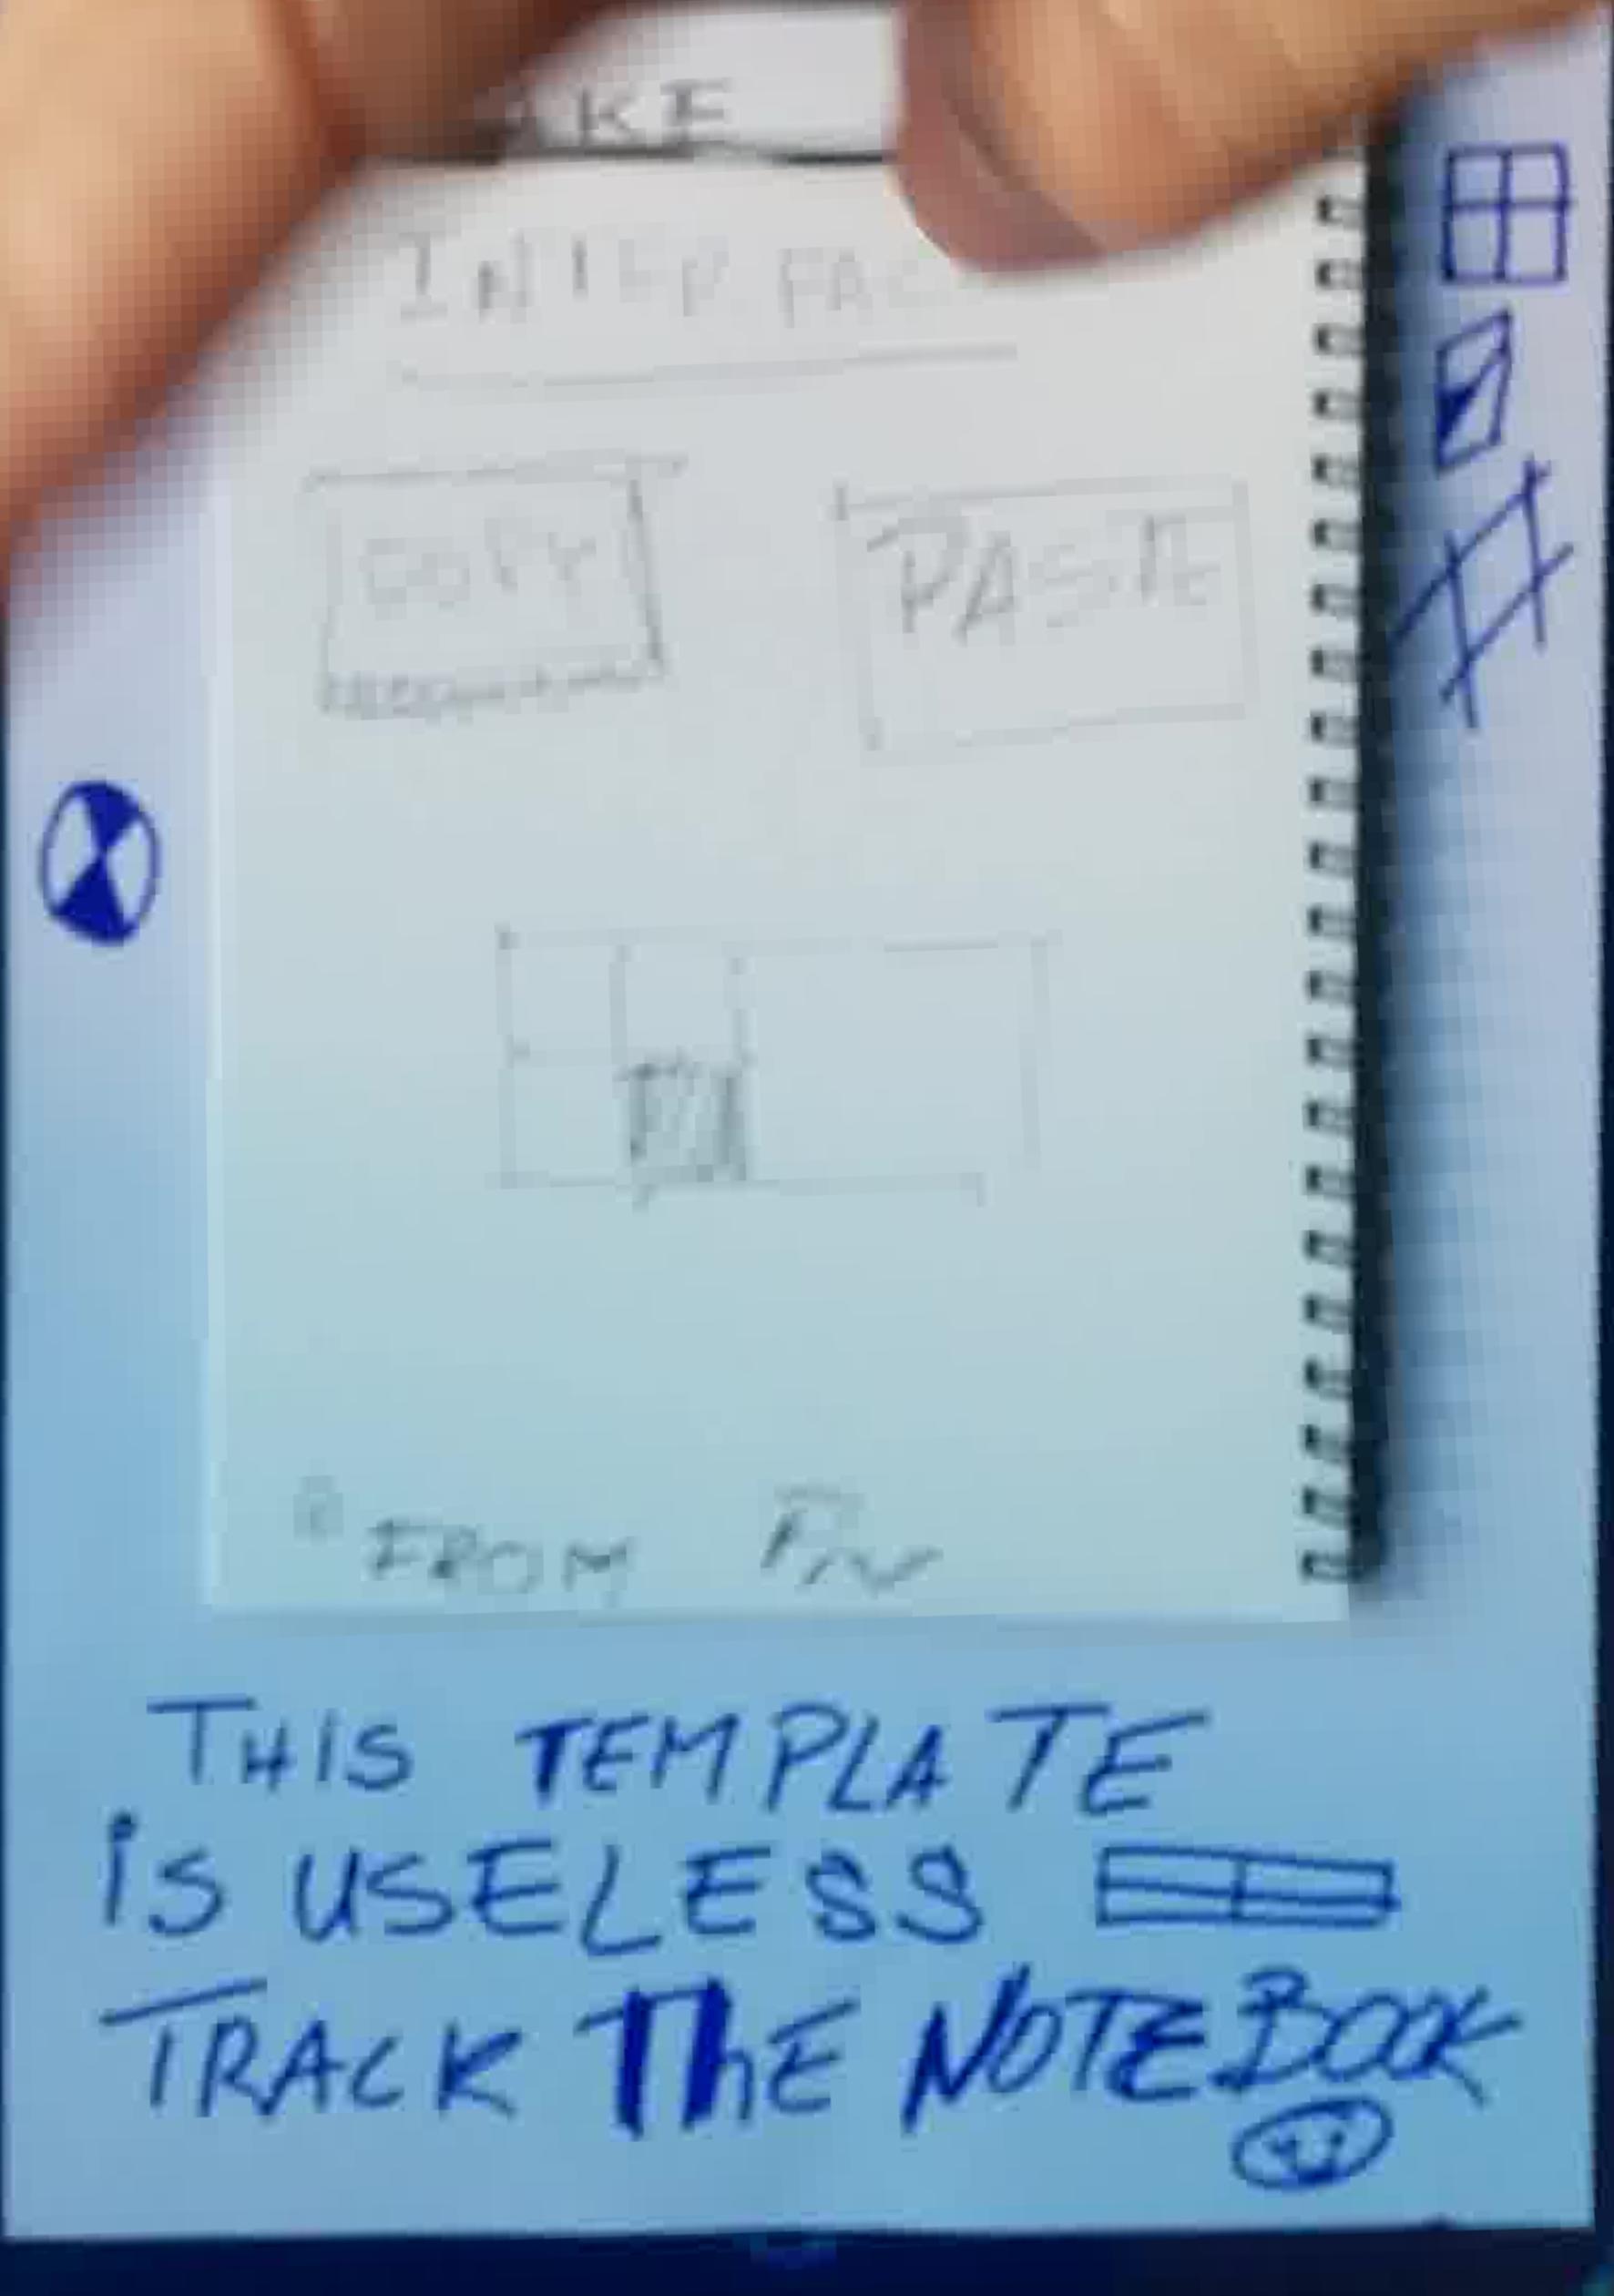 KE
INTERFAC
COPY
PASTE
FROM
THIS TEMPLATE
is USELESS
TRACK ThE NOTEBOOK